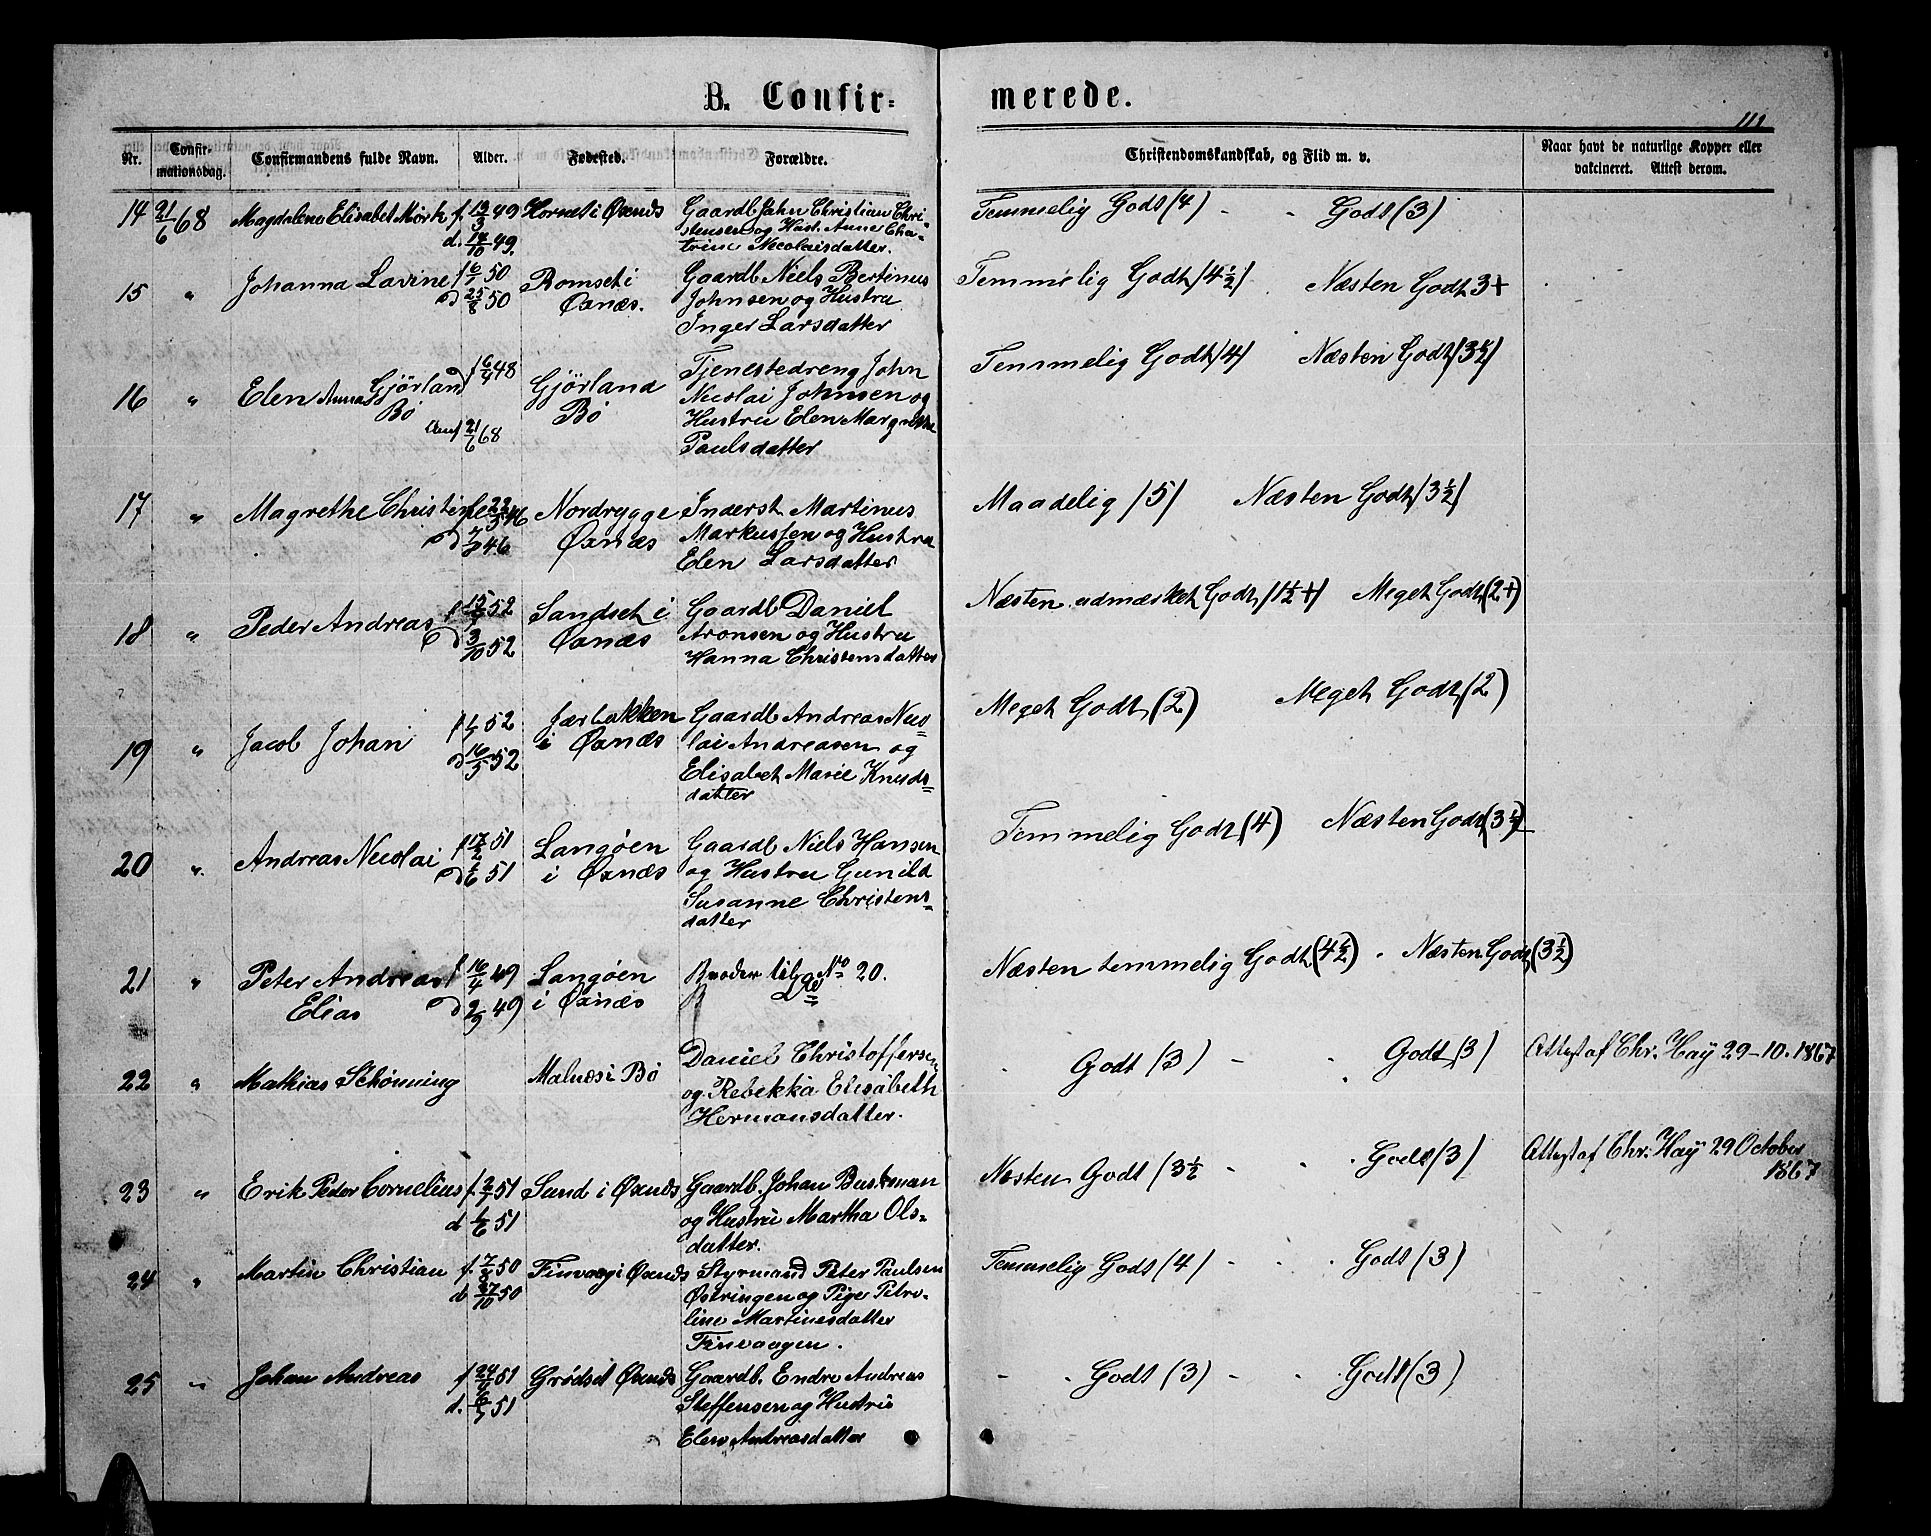 B. Confirmerede.
111
Nr. Confirmationsdag. Confirmandens fulde Navn. Alder. Fødested. Forældre. Christendomskundskab, og Flid m. v. Naar havt de naturlige Kopper eller vakcineret. Attest derom.
14 21/6 68 Magdalena Elisabet Mørk f. 19/3 49 Øxnæs Gaardb. Jahn Christian Chri- Temmelig Godt (4) Godt (3)
d. 14/10 49. stensen og Hust. Anne Cha-
trine Nicolaisdatter.
15 " Johanna Lavine f 6/7 50 Romset i Gaardb Niels Bertinus Temmelig Godt /4½/ Næsten Godt 3+
d 25/8 50 Øxnæs. Johnsen og Hustru
Inger Larsdatter
16 " Elen Anna Gjørland f 6/4 48 Gjørland Tjenestedreng John Temmelig Godt /4/ Næsten Godt /3½/
Bø Bø Nicolai Johnsen og
21/6 68 Hustru Elen Margrethe
Paulsdatter
17 " Magrethe Christine f 22/3 46 Nordrygge Inderst Martinus Maadelig /5/ Næsten Godt /3½/
d 46 Øxnæs Markussen og Hustru
Elen Larsdatter
18 " Peder Andreas f 52 Sandset i Gaardb Daniel Næsten udmærket Godt /1½+/ Meget Godt (2+)
d 3/10 52 Øxnæs Aronsen og Hustru
Hanna Christensdatter
19 " Jacob Johan f 52 i Øxnæs Gaardb Andreas Nico- Meget Godt (2) Meget Godt (2)
d 16/5 52 lai Andreasen og
Elisabet Marie Knuds-
datter
20 " Andreas Nicolai f 17/2 51 Langøen Gaardb Niels Hansen Temmelig Godt (4) Næsten Godt (3½)
d 1/6 51 i Øxnæs og Hustru Gunild
Susanne Christens-
datter
21 " Peter Andreas f 16/4 49 Langøen Broder til No 20. Næsten temmelig Godt (4½) Næsten Godt (3½)
Elias d 2/9 49 i Øxnæs
22 " Mathias Schønning Malnæs i Bø Daniel Christoffersen Godt (3) Godt (3) Attest af Chr. Hay 29-10.1867
og Rebekka Elisabeth
Hermansdatter.
23 " Erik Peder Cornelius f. 2/1 51 Sund i Øxnæs Gaardb. Johan Buskman Næsten Godt (3½ Godt (3) Attest af Chr. Hay 29 October
d 1/6 51 og Hustru Martha Ols- 1867
datter.
24 " Martin Christian f. 50 Finvaag i Øxnæs Styrmand Peter Paulsen Temmelig Godt (4) Godt (3)
d 27/10 50 Østringen og Pige Petro-
line Martinesdatter
Finvaagen.
25 " Johan Andreas f 51 Grødset Øxnæs Gaardb. Endre Andreas Godt (3) Godt (3)
d. 51 Steffensen og Hustru
Elen Andreasdatter